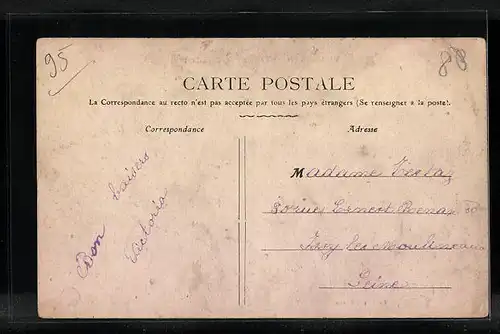 95
88
CARTE POSTALE
La Correspondance au recto n'est pas acceptée par tous les pays étrangers (Se renseigner à la poste).
Correspondance
Adresse
Bon baisers
Victoria
Madame
rue Ernest Renan
Issy les Moulineaux
Seine